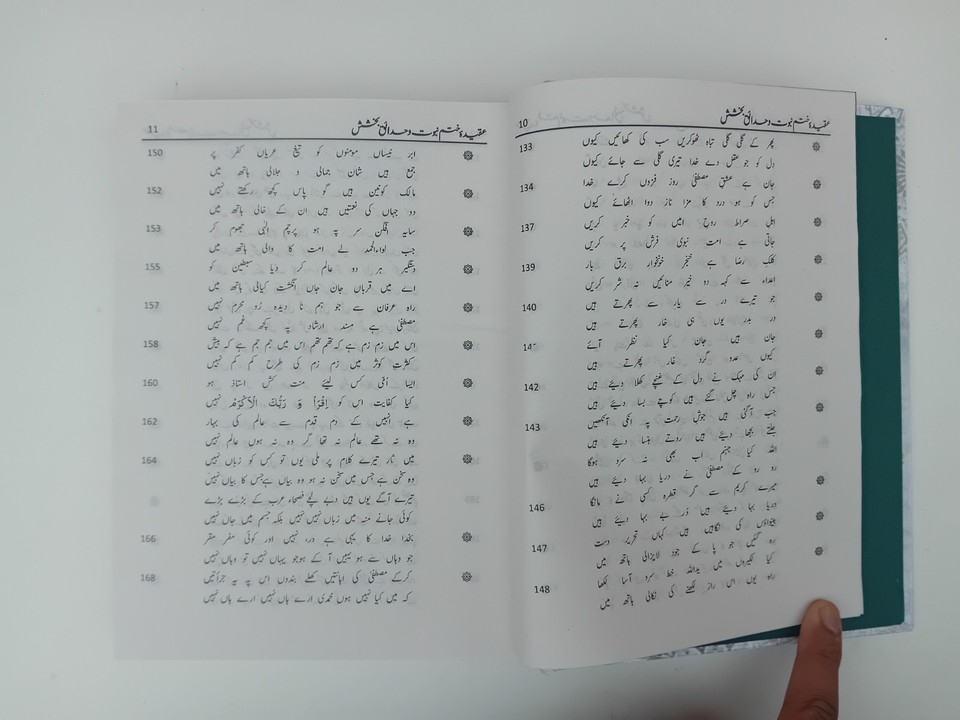 عقیدۂ ختم نبوت و حدائق بخشش 10
پھر کے گلی گلی تباہ ٹھوکریں سب کی کھائیں کیوں 133
دل کو جو عقل دے خدا تیری گلی سے جائے کیوں
جان ہے عشق مصطفیٰ روز فزوں کرے خدا 134
جس کو ہو درد کا مزا ناز دوا اٹھائے کیوں
اہل صراط روح امیں کو خبر کریں 137
جاتی ہے امت نبوی فرش پر کریں
کلک رضا ہے خنجر خونخوار برق بار 139
اعداء سے کہہ دو خیر منائیں نہ شر کریں
جو تیرے در سے یار پھرتے ہیں 140
در بدر یوں ہی خار پھرتے ہیں
جان ہیں جان کیا نظر آئے 14
کیوں عدو گرد غار پھرتے ہیں
ان کی مہک نے دل کے غنچے کھلا دیئے ہیں 142
جس راہ چل گئے ہیں کوچے بسا دیئے ہیں
جب آگئی ہیں جوش رحمت پہ انکی آنکھیں 143
جلتے بجھا دیئے ہیں روتے ہنسا دیئے ہیں
اللہ کیا جہنم اب بھی نہ سرد ہوگا
رو رو کے مصطفیٰ نے دریا بہا دیئے ہیں
میرے کریم سے گر قطرہ کسی نے مانگا 146
دریا بہا دیئے ہیں در بے بہا دیئے ہیں
بینواؤں کی نگاہیں ہیں کہاں تحریر دست 147
رہ گئیں جو پا کے جود لایزالی ہاتھ میں
کیا لکیروں میں یداللہ خط سرو آسا لکھا 148
راہ یوں اس راز لکھنے کی نکالی ہاتھ میں
عقیدۂ ختم نبوت و حدائق بخشش 11
ابر نیساں مومنوں کو تیغ عریاں کفر پر 150
جمع ہیں شان جمالی و جلالی ہاتھ میں
مالک کونین ہیں گو پاس کچھ رکھتے نہیں 152
دو جہاں کی نعمتیں ہیں ان کے خالی ہاتھ میں
سایہ افگن سر پہ ہو پرچم الٰہی جھوم کر 153
جب لواءالحمد لے امت کا والی ہاتھ میں
دستگیر ہر دو عالم کر دیا سبطین کو 155
اے میں قرباں جان جاں انگشت کیالی ہاتھ میں
راہ عرفان سے جو ہم نا دیدہ رو محرم نہیں 157
مصطفیٰ ہے مسند ارشاد پہ کچھ غم نہیں
اس میں زم زم ہے کہ تھم تھم اس میں جم جم ہے کہ بیش 158
کثرت کوثر میں زم زم کی طرح کم کم نہیں
ایسا اُمی کس لیئے منت کش استاذ ہو 160
کیا کفایت اس کو اِقْرَأْ وَ رَبُّكَ الْاَکْرَمُ نہیں
ہے انہیں کے دم قدم سے عالم کی بہار 162
وہ نہ تھے عالم نہ تھا گر وہ نہ ہوں عالم نہیں
میں نثار تیرے کلام پر ملی یوں تو کس کو زباں نہیں 164
وہ سخن ہے جس میں سخن نہ ہو وہ بیاں ہے جس کا بیاں نہیں
تیرے آگے یوں ہیں دبے لچے فصحاء عرب کے بڑے بڑے
کوئی جانے منہ میں زباں نہیں نہیں بلکہ جسم میں جاں نہیں
بخدا خدا کا یہی ہے در، نہیں اور کوئی مفر مقر 166
جو وہاں سے ہو یہیں آ کے ہو جو یہاں نہیں تو وہاں نہیں
کرے مصطفیٰ کی اہانتیں کھلے بندوں اس پہ یہ جرأتیں 168
کہ میں کیا نہیں ہوں محمدی ارے ہاں نہیں ارے ہاں نہیں